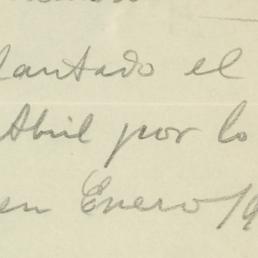 lantado el
Abril por lo
en Enero/9